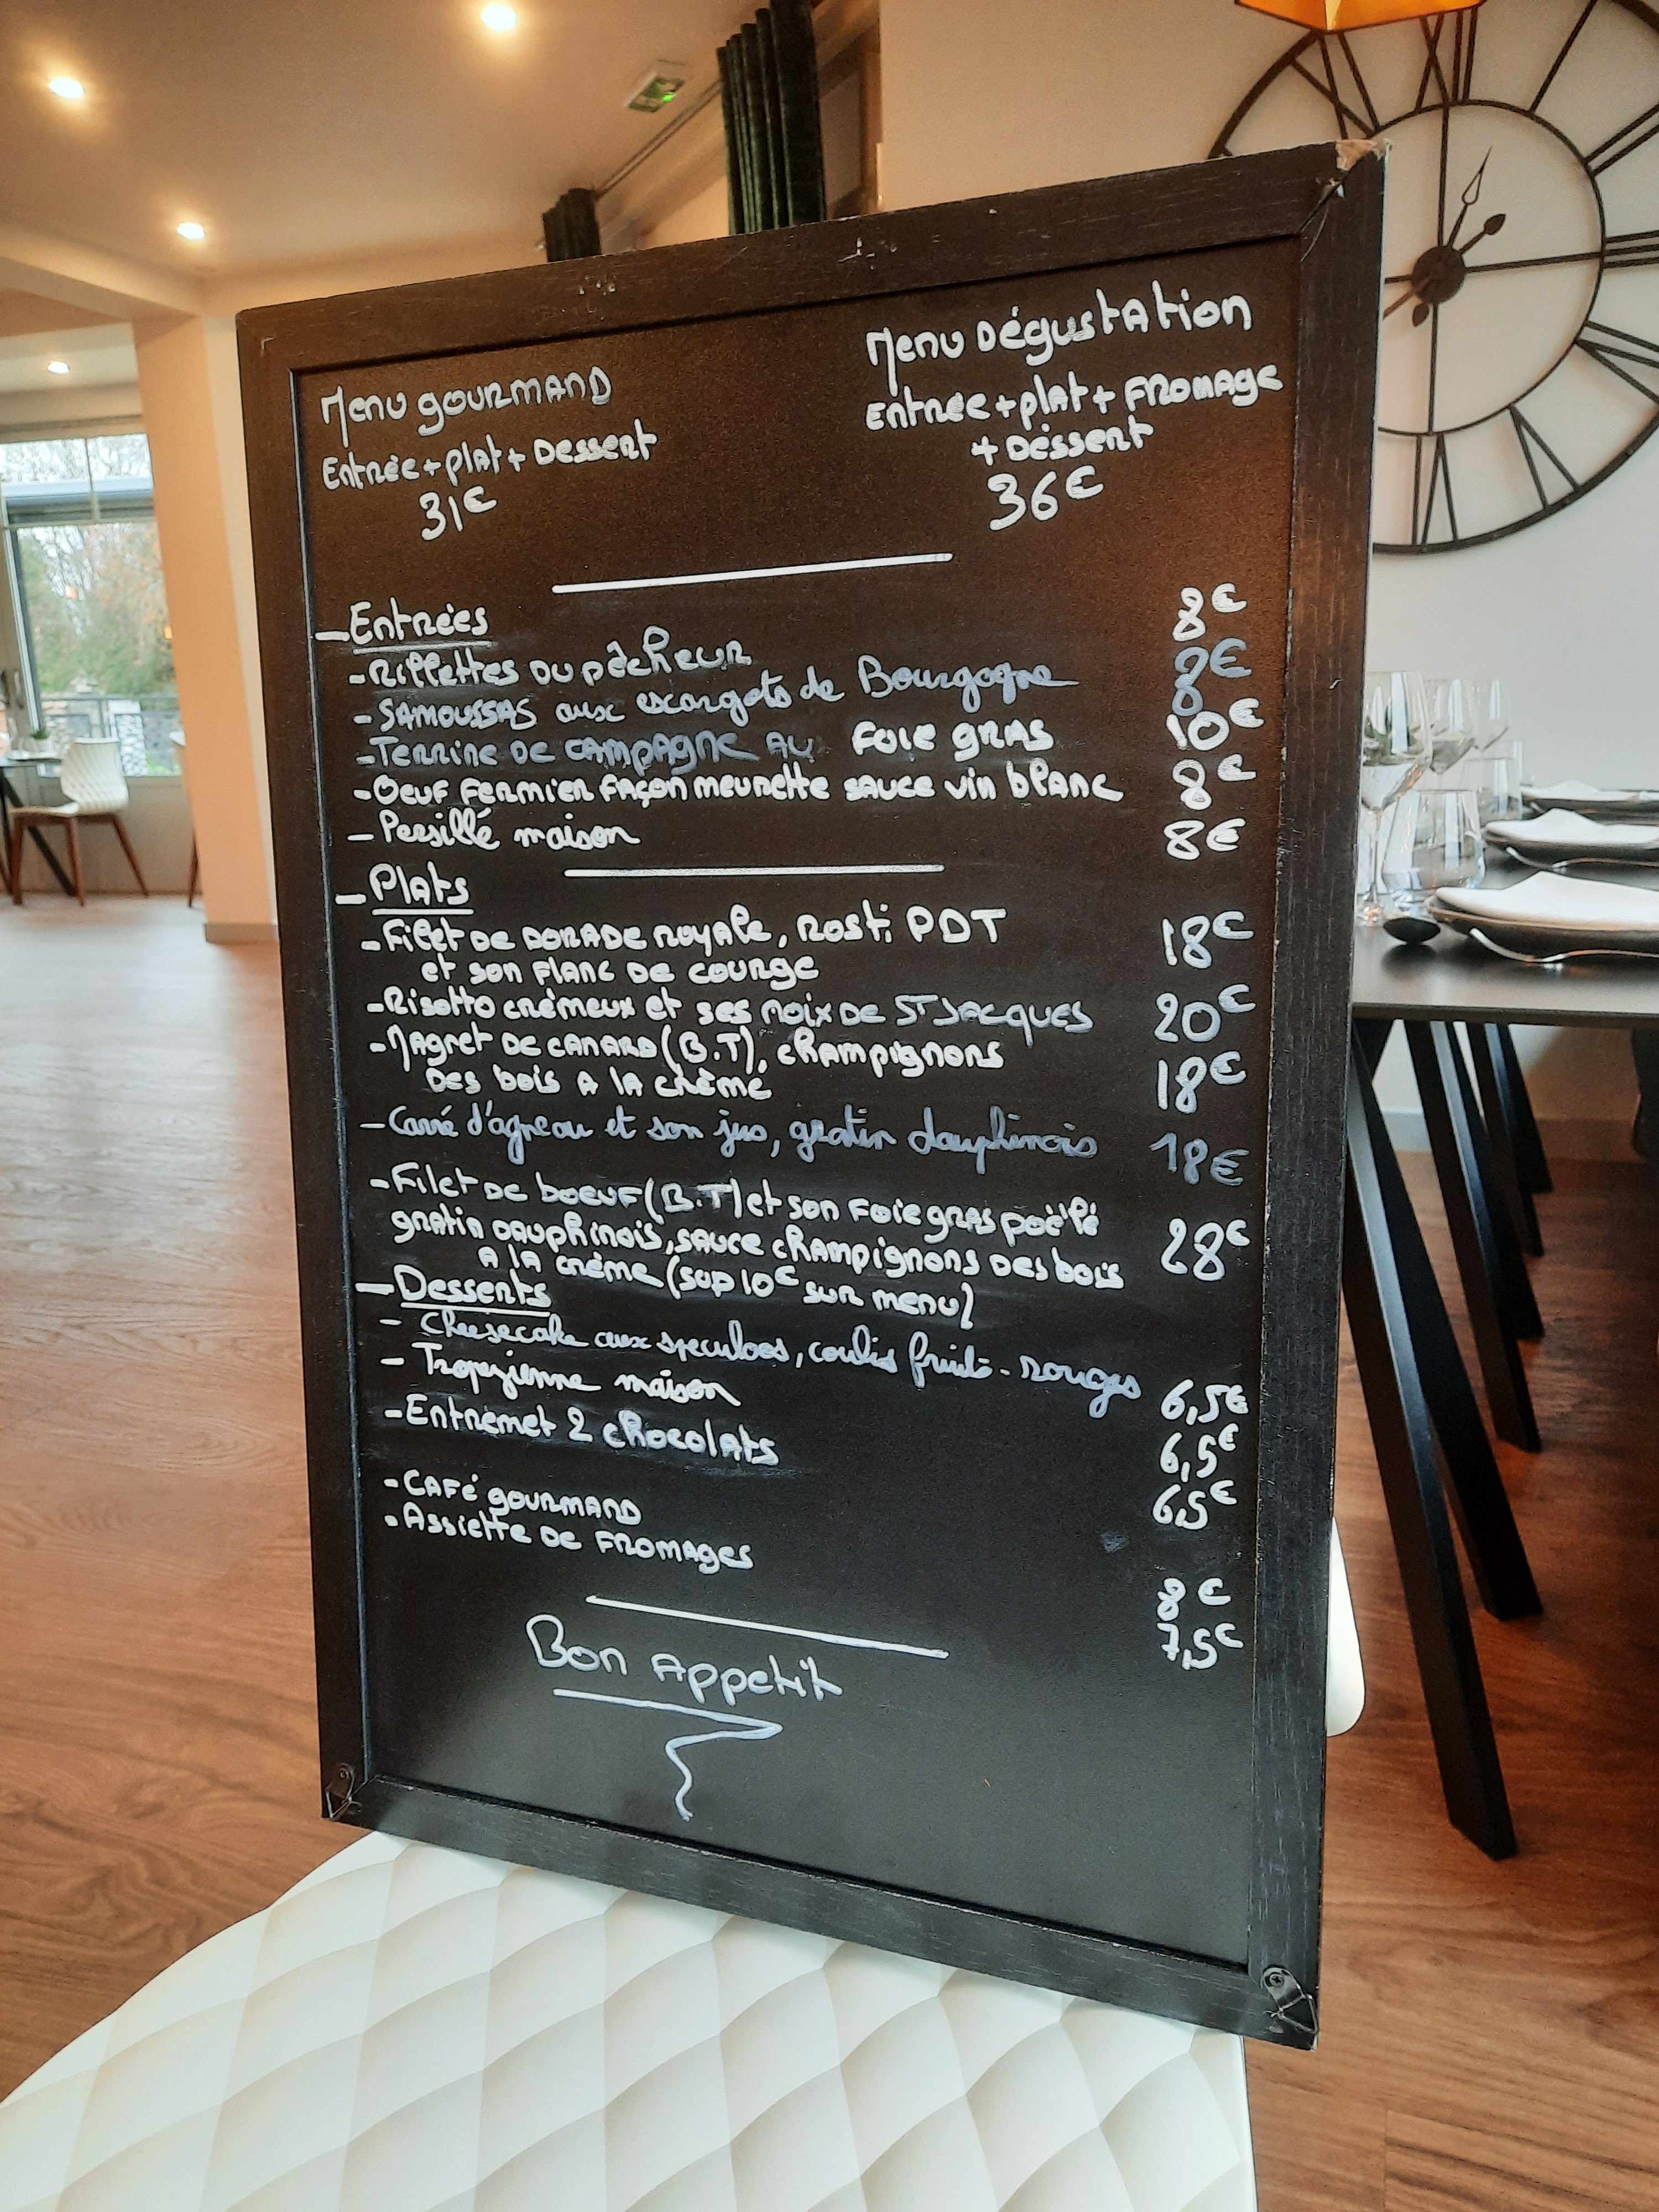 Menu gourmand
Entrée + plat + Dessert
31€
Menu Dégustation
Entrée + plat + Fromage
+ Dessert
36€
Entrées
- Rillettes du pêcheur 8€
- Samoussas aux escargots de Bourgogne 8€
- Terrine de campagne au foie gras 10€
- Oeuf fermier façon meurette sauce vin blanc 8€
- Persillé maison 8€
Plats
- Filet de dorade royale, rosti PDT 18€
et son flanc de courge
- Risotto crémeux et ses noix de St Jacques 20€
- Magret de canard (B.T), champignons 18€
des bois a la crème
- Carré d'agneau et son jus, gratin dauphinois 18€
- Filet de boeuf (B.T) et son foie gras poêlé
gratin dauphinois, sauce champignons des bois 28€
a la crème (sup 10€ sur menu)
Desserts
- Cheesecake aux speculoos, coulis fruits-rouges 6,5€
- Tropezienne maison 6,5€
- Entremet 2 chocolats 6,5€
- Café gourmand 8€
- Assiette de fromages 7,5€
Bon Appetit